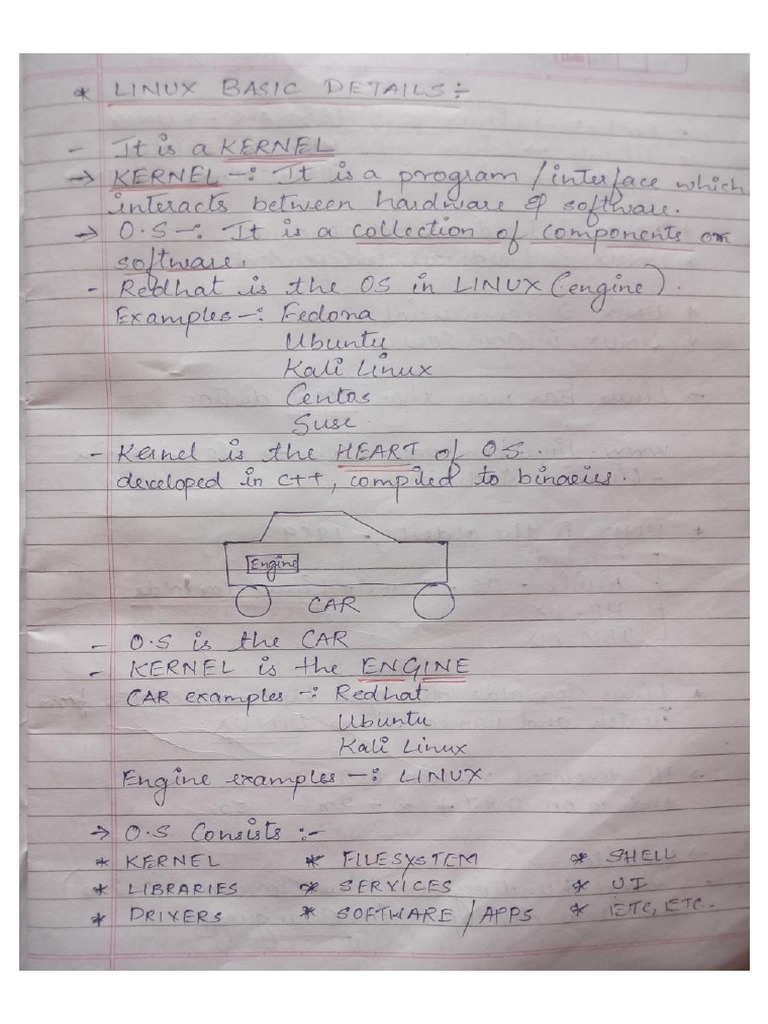 * LINUX BASIC DETAILS :-
- It is a KERNEL
→ KERNEL -: It is a program / interface which
interacts between hardware & software.
→ O.S -: It is a collection of components or
software.
- Redhat is the OS in LINUX (engine).
Examples -: Fedora
Ubuntu
Kali Linux
Centos
Suse
- Kernel is the HEART of OS.
developed in C++, compiled to binaries.
Engine
CAR
- O.S is the CAR
- KERNEL is the ENGINE
CAR examples -: Redhat
Ubuntu
Kali Linux
Engine examples -: LINUX
→ O.S Consists :-
* KERNEL * FILESYSTEM * SHELL
* LIBRARIES * SERVICES * UI
* DRIVERS * SOFTWARE / APPS * ETC, ETC.